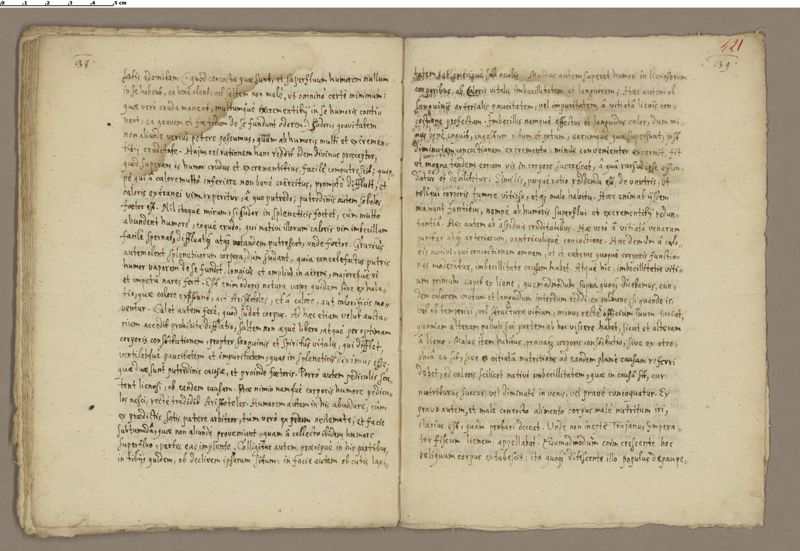 38
satis edomitam (quod concocta quae sunt, et superfluum humorem nullum
in se habent, ea vero olent, vel saltem non male, ut omnino certè minimum:
quae verò cruda manent, multumque excrementitij in se humoris conti-
nent; ea gravem et foetidum de se fundunt odorem. Sudoris gravitatem
non aliunde verius petere possumus, quàm ab humoris multi et excremen-
titij cruditate. Huius rei rationem hanc reddit idem divinus praeceptor,
quod superans is humor crudus et excrementitius, facile computrescit; quip-
pe qui à calore multò inferiore non bene coërcitus, promptè diffluit, et
caloris extranei vim experitur, à quo putredo; putredinis autem soboles
foetor est. Nil itaque mirum, si sudor in spleneticis foetet, cum multo
abundent humore, eoque crudo, qui nativi illorum caloris vim imbecillam
facile spernat, diffluatque atque tandem putrescat, unde foetor. Gravius
autem olent splenetico­rum corpora, dum sudant, quia concalefactus putris
humor vaporem de se fundit, longius et amplius in aërem, maiorque vi
et impetu nares ferit. Est enim odoris natura vapor quidam sive exhala-
tio, quae calore ait Aristoteles, et à calore, aut calorificis mo-
ventur. Calet autem ferè, quod sudat corpus. Ad haec etiam velut auctua-
rium accedit prohibita difflatio, saltem non aequè libera, atque per optimam
corporis constitutionem, propter sanguinis et spiritus vitalis, qui difflet,
ventiletque paucitatem et impuritatem; quas in spleneticis diximus esse,
quae duae sunt putredinis causae, et proinde foetoris. Porrò autem pediculis sca-
tent lienosi, ob eandem causam. Prae nimio namque corporis humore pedicu-
los nasci, rectè tradidit Aristoteles. Humorem autem in his abundare, cùm
ex praedictis satis patere arbitror, tum verò ex pedum oedemate, et facie
subtumida, quae non aliunde proveniunt, quam à collecto ibidem humore
superfluo, partes eas implente. Colligitur autem praecipuè in his partibus,
in tibijs quidem, ob declivem ipsarum situm; in facie autem ob cutis laxi-
421
39
tatem sub oculis. Multus autem superat humor in lienosorum
corporibus, ob caloris vitalis imbecillitatem et languorem; haec autem ob
sanguinis arterialis paucitatem, vel impuritatem, à vitiata lienis con-
coctione profectam. Imbecillis namque effectus et languidus calor, dum mi-
nus bene coquit, ingestum cibum et potum, eorumque quae supersunt, post
diminutam concoctionem excrementa minus convenienter excernit, fit
ut magna tandem eorum vis in corpore succrescat, à qua rursus ipse offun-
datur et debilitetur. Similis, porque ratio reddenda est, de ventris, et
reliqui corporis tumore vitioso, atque malo habitu. Haec enim ab ijsdem
manant fontibus, nempe ab humoris superflui et excrementitij redun-
tantia. Haec autem ab assiduis cruditatibus. Hae verò à vitiata venarum
pariter atque arteriarum, ventriculique concoctione. Haec demùm à calo-
ris nativi, qui concoctionem omnem, ut et caeteras quasque corporis functio-
nes moderatur, imbecillitate causam habet. Atque hic, imbecillitatis viti-
um primùm capit ex liene, quemadmodum supra quoque dicebamus, eun-
dem calorem victum et languidum interdum reddi ex pulmone, si quando is,
vel ob temperiei, vel structurae vitium, minus rectè officium suum faciat,
quoniam alteram pabuli sui partem ab hoc viscere habet, sicut et alteram
à liene. Malus item habitus, pravaque corporis constitutio, sive ex atro-
phia ea sit, sive ex vitiata nutritione ad eandem planè causam referri
debet, ad caloris scilicet nativi imbecillitatem, quae in causa sit, cur
nutriturus succus, vel diminutè in venis, vel pravè concoquatur. Ex
pravo autem, et male concocto alimento corpus male nutritum iri,
clarius est, quàm probari deceat. Unde non ineptè Traianus Impera-
tor fiscum lienem appellabat. Quemadmodum enim crescente hoc
reliquum corpus extabescit: ita quoque ditescente illo populus depaupe-